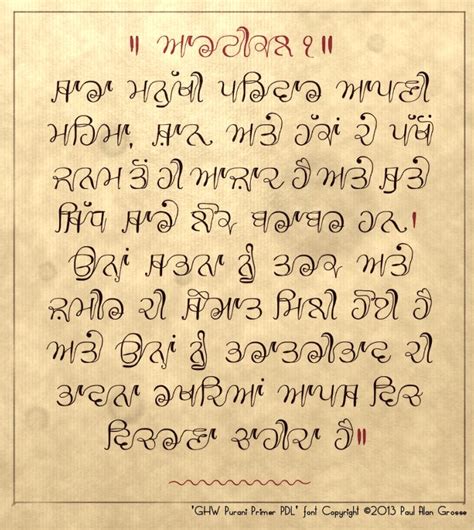 ॥ ਆਰਟੀਕਲ ੧ ॥
ਸਾਰਾ ਮਨੁੱਖੀ ਪਰਿਵਾਰ ਆਪਣੀ
ਮਹਿਮਾ, ਸ਼ਾਨ ਅਤੇ ਹੱਕਾਂ ਦੇ ਪੱਖੋਂ
ਜਨਮ ਤੋਂ ਹੀ ਆਜ਼ਾਦ ਹੈ ਅਤੇ ਸੁਤੇ
ਸਿੱਧ ਸਾਰੇ ਲੋਕ ਬਰਾਬਰ ਹਨ।
ਉਨ੍ਹਾਂ ਸਭਨਾ ਨੂੰ ਤਰਕ ਅਤੇ
ਜ਼ਮੀਰ ਦੀ ਸੌਗਾਤ ਮਿਲੀ ਹੋਈ ਹੈ
ਅਤੇ ਉਨ੍ਹਾਂ ਨੂੰ ਭਰਾਤਰੀਭਾਵ ਦੀ
ਭਾਵਨਾ ਰਖਦਿਆਂ ਆਪਸ ਵਿਚ
ਵਿਚਰਣਾ ਚਾਹੀਦਾ ਹੈ॥
"GHW Purani Primer PDL" font Copyright ©2013 Paul Alan Grosse